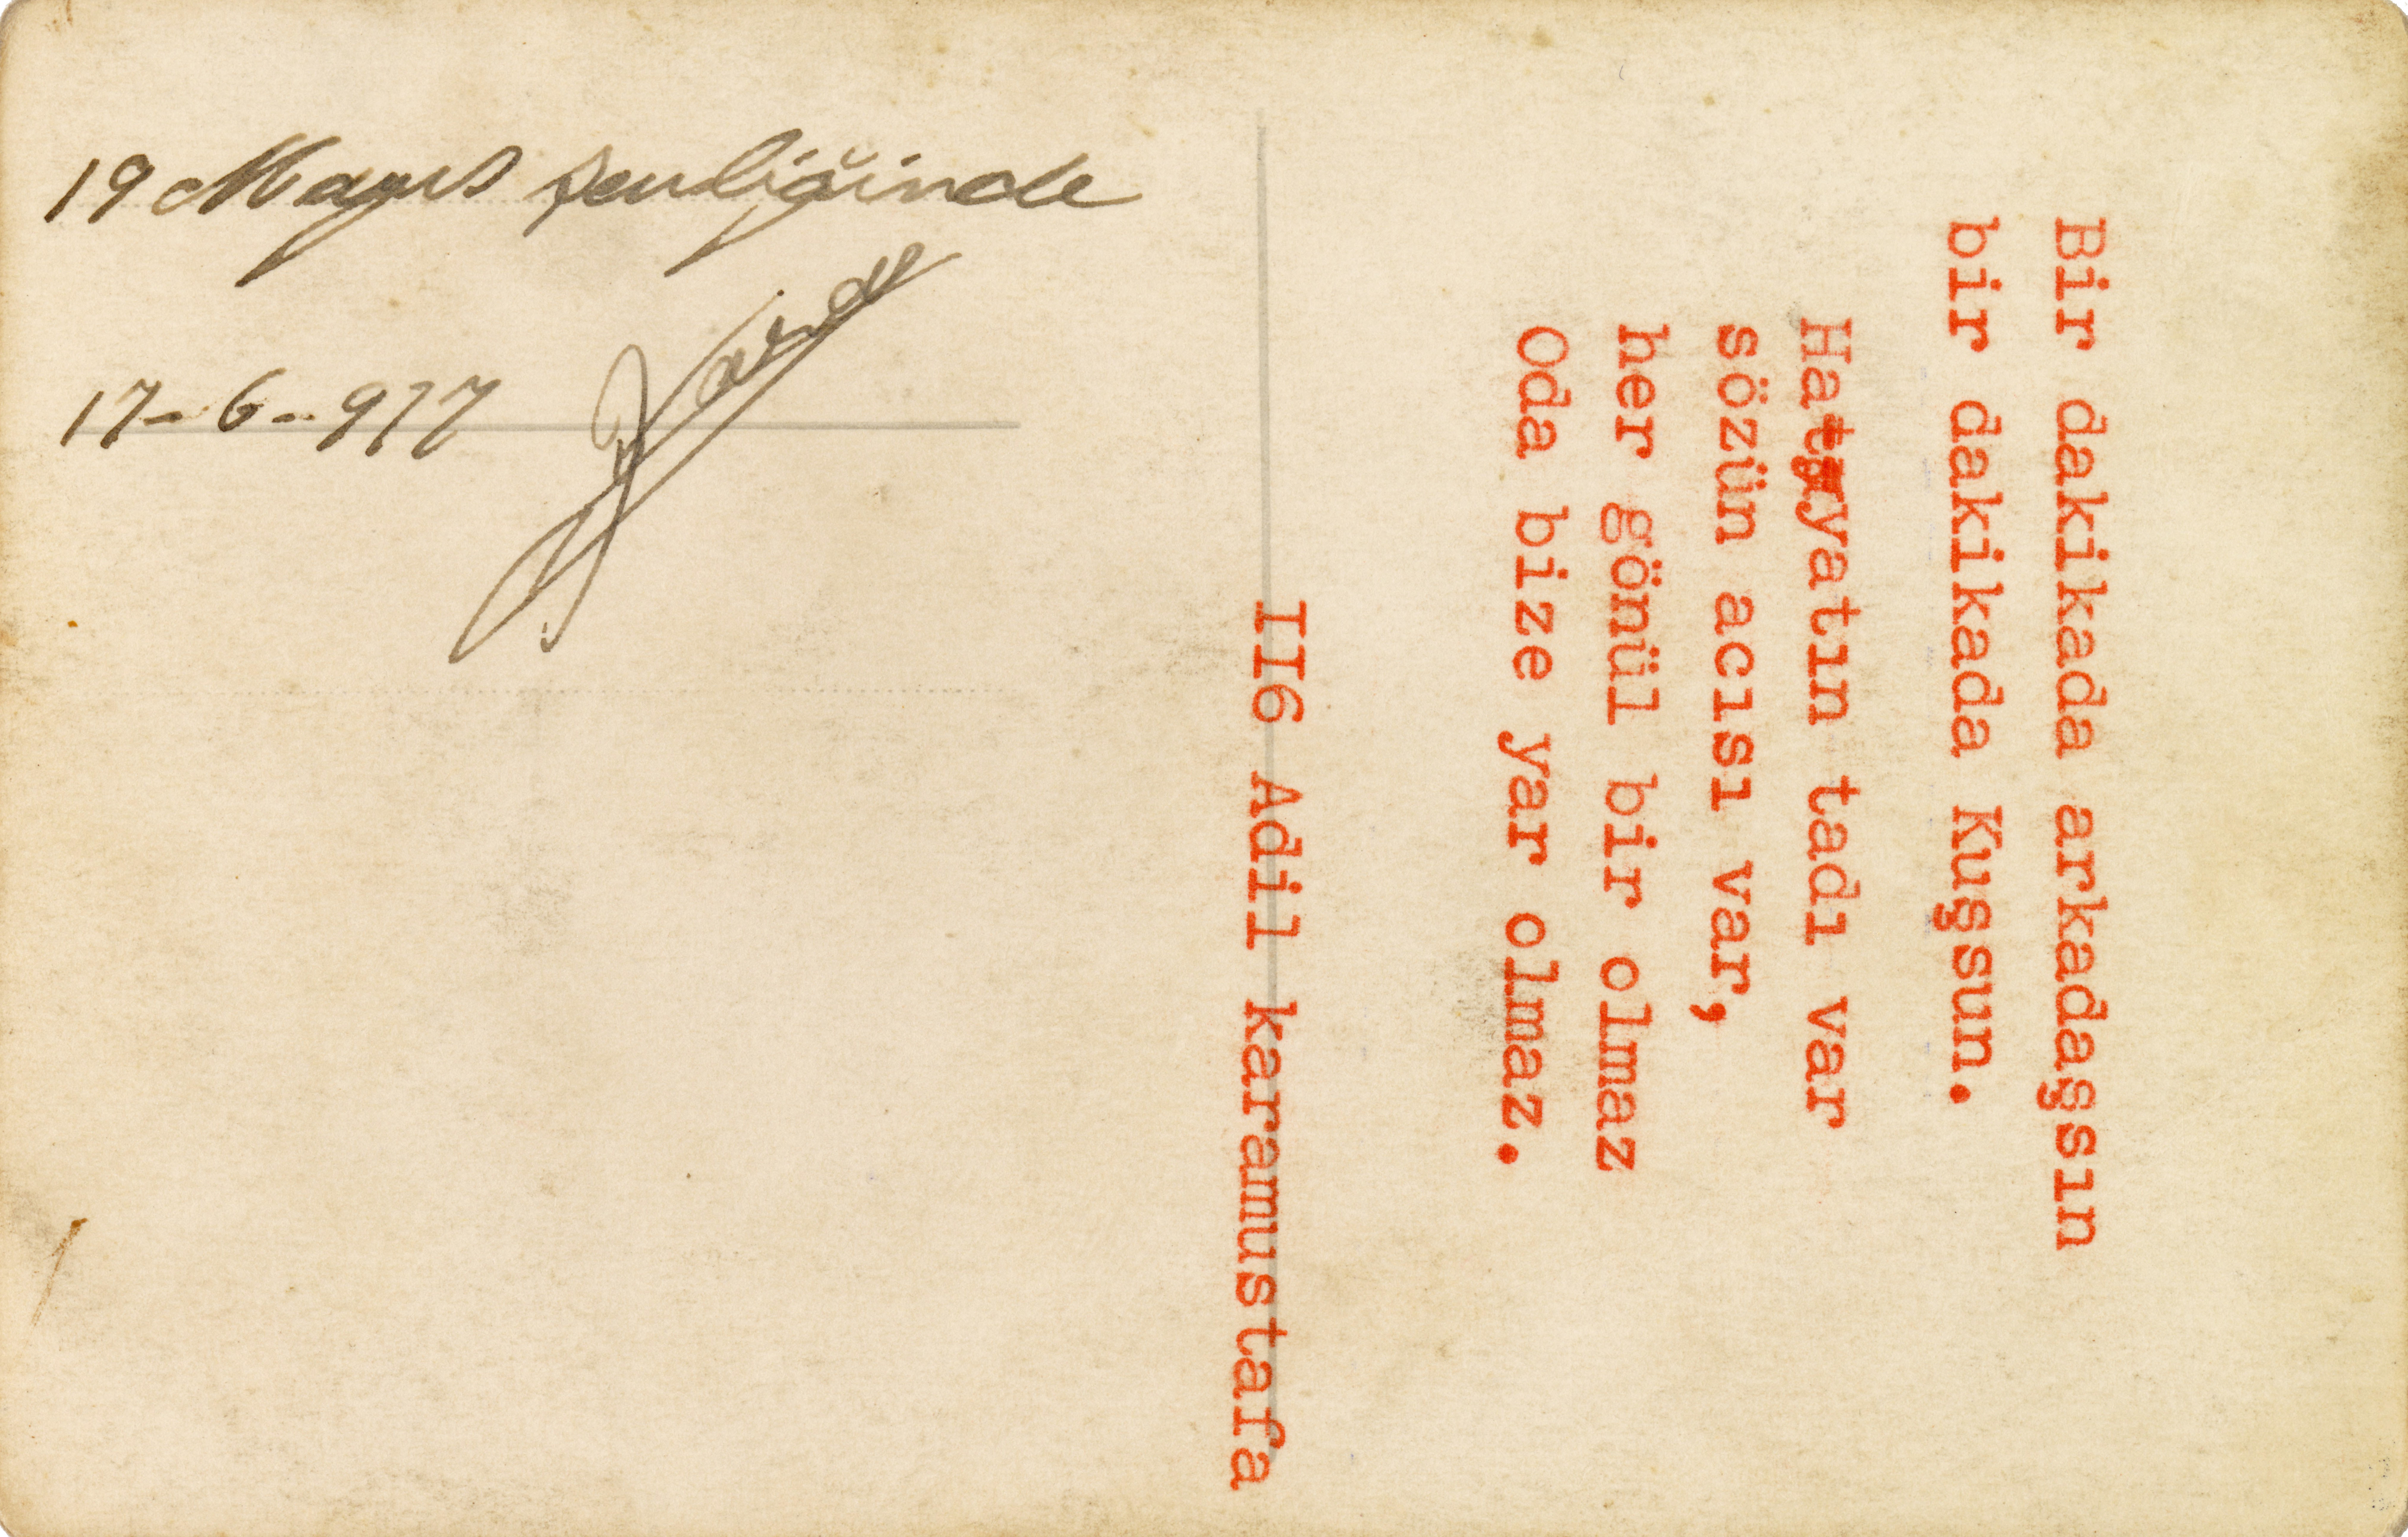 19 Mayıs şenliğinde
17-6-977
Bir dakikada arkadaşsın
bir dakikada Kuşsun.
Hayatın tadı var
sözün acısı var,
her gönül bir olmaz
Oda bize yar olmaz.
II6 Adil karamustafa